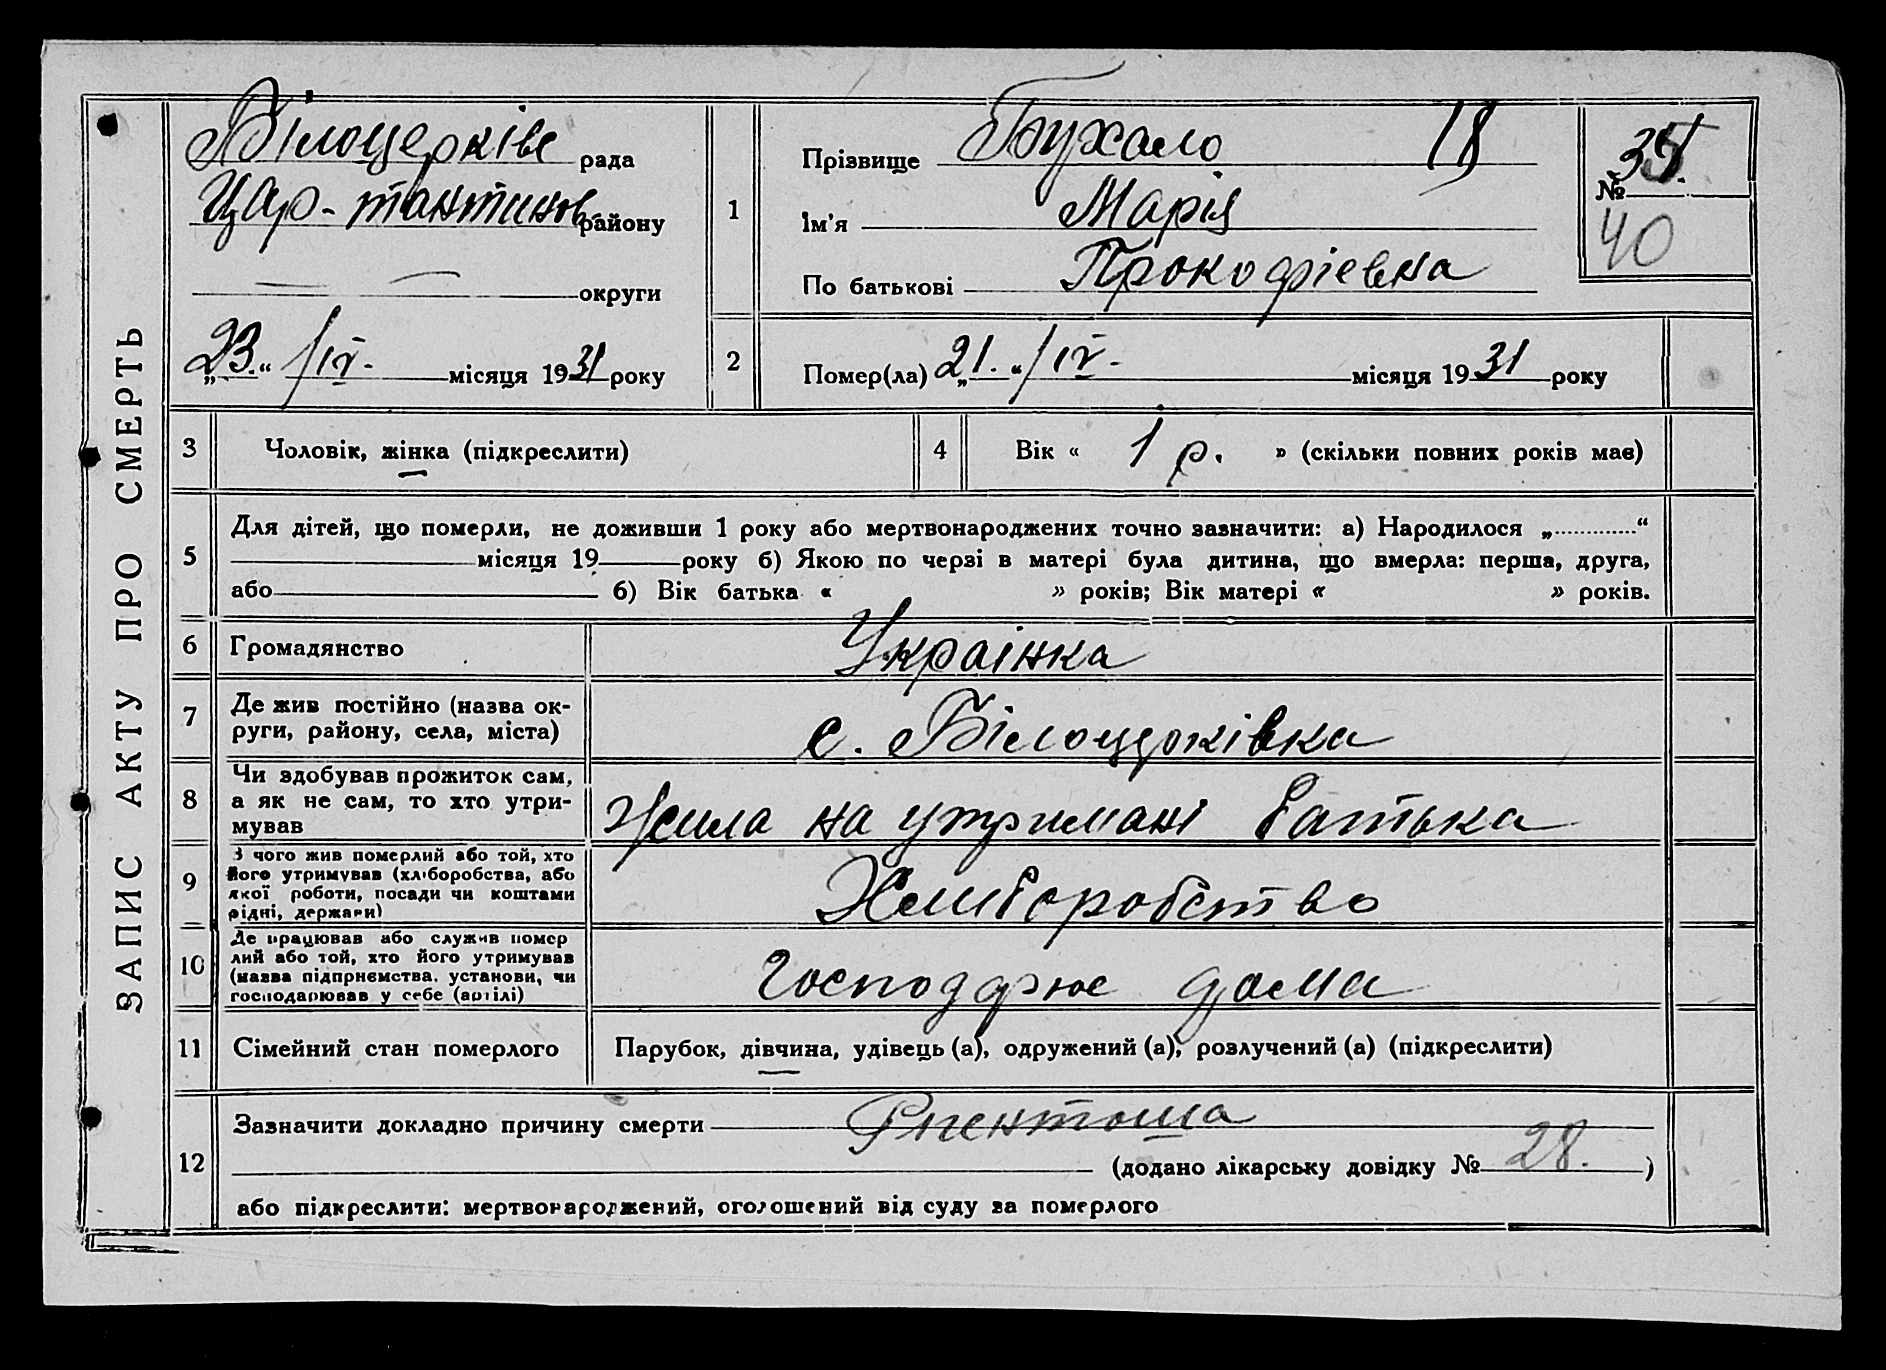 ЗАПИС АКТУ ПРО СМЕРТЬ
Білоцерківс рада
Цар-тантинов району
округи
„23.“ /IV.- місяця 1931 року
1
Прізвище Бухало 18
Ім'я Марія
По батькові Прокофіевна
№ 35
40
2
Помер(ла) „21.“ /IV.- місяця 1931 року
3 Чоловік, жінка (підкреслити)
4 Вік « 1 р. » (скільки повних років має)
5
Для дітей, що померли, не доживши 1 року або мертвонароджених точно зазначити: а) Народилося „............“
місяця 19 року б) Якою по черзі в матері була дитина, що вмерла: перша, друга,
або б) Вік батька « » років; Вік матері « » років.
6 Громадянство Украінка
7 Де жив постійно (назва ок-
руги, району, села, міста) с. Білоцерківка
8 Чи здобував прожиток сам,
а як не сам, то хто утри-
мував Жила на утримані батька
9 З чого жив померлий або той, хто
його утримував (хліборобства, або
якої роботи, посади чи коштами
рідні, держави) Хлиборобство
10 Де працював або служив помер
лий або той, хто його утримував
(назва підприємства, установи, чи
господарював у себе (артілі) Господарює дома
11 Сімейний стан померлого Парубок, дівчина, удівець (а), одружений (а), розлучений (а) (підкреслити)
12
Зазначити докладно причину смерти
(додано лікарську довідку № 28. )
або підкреслити: мертвонароджений, оголошений від суду за померлого